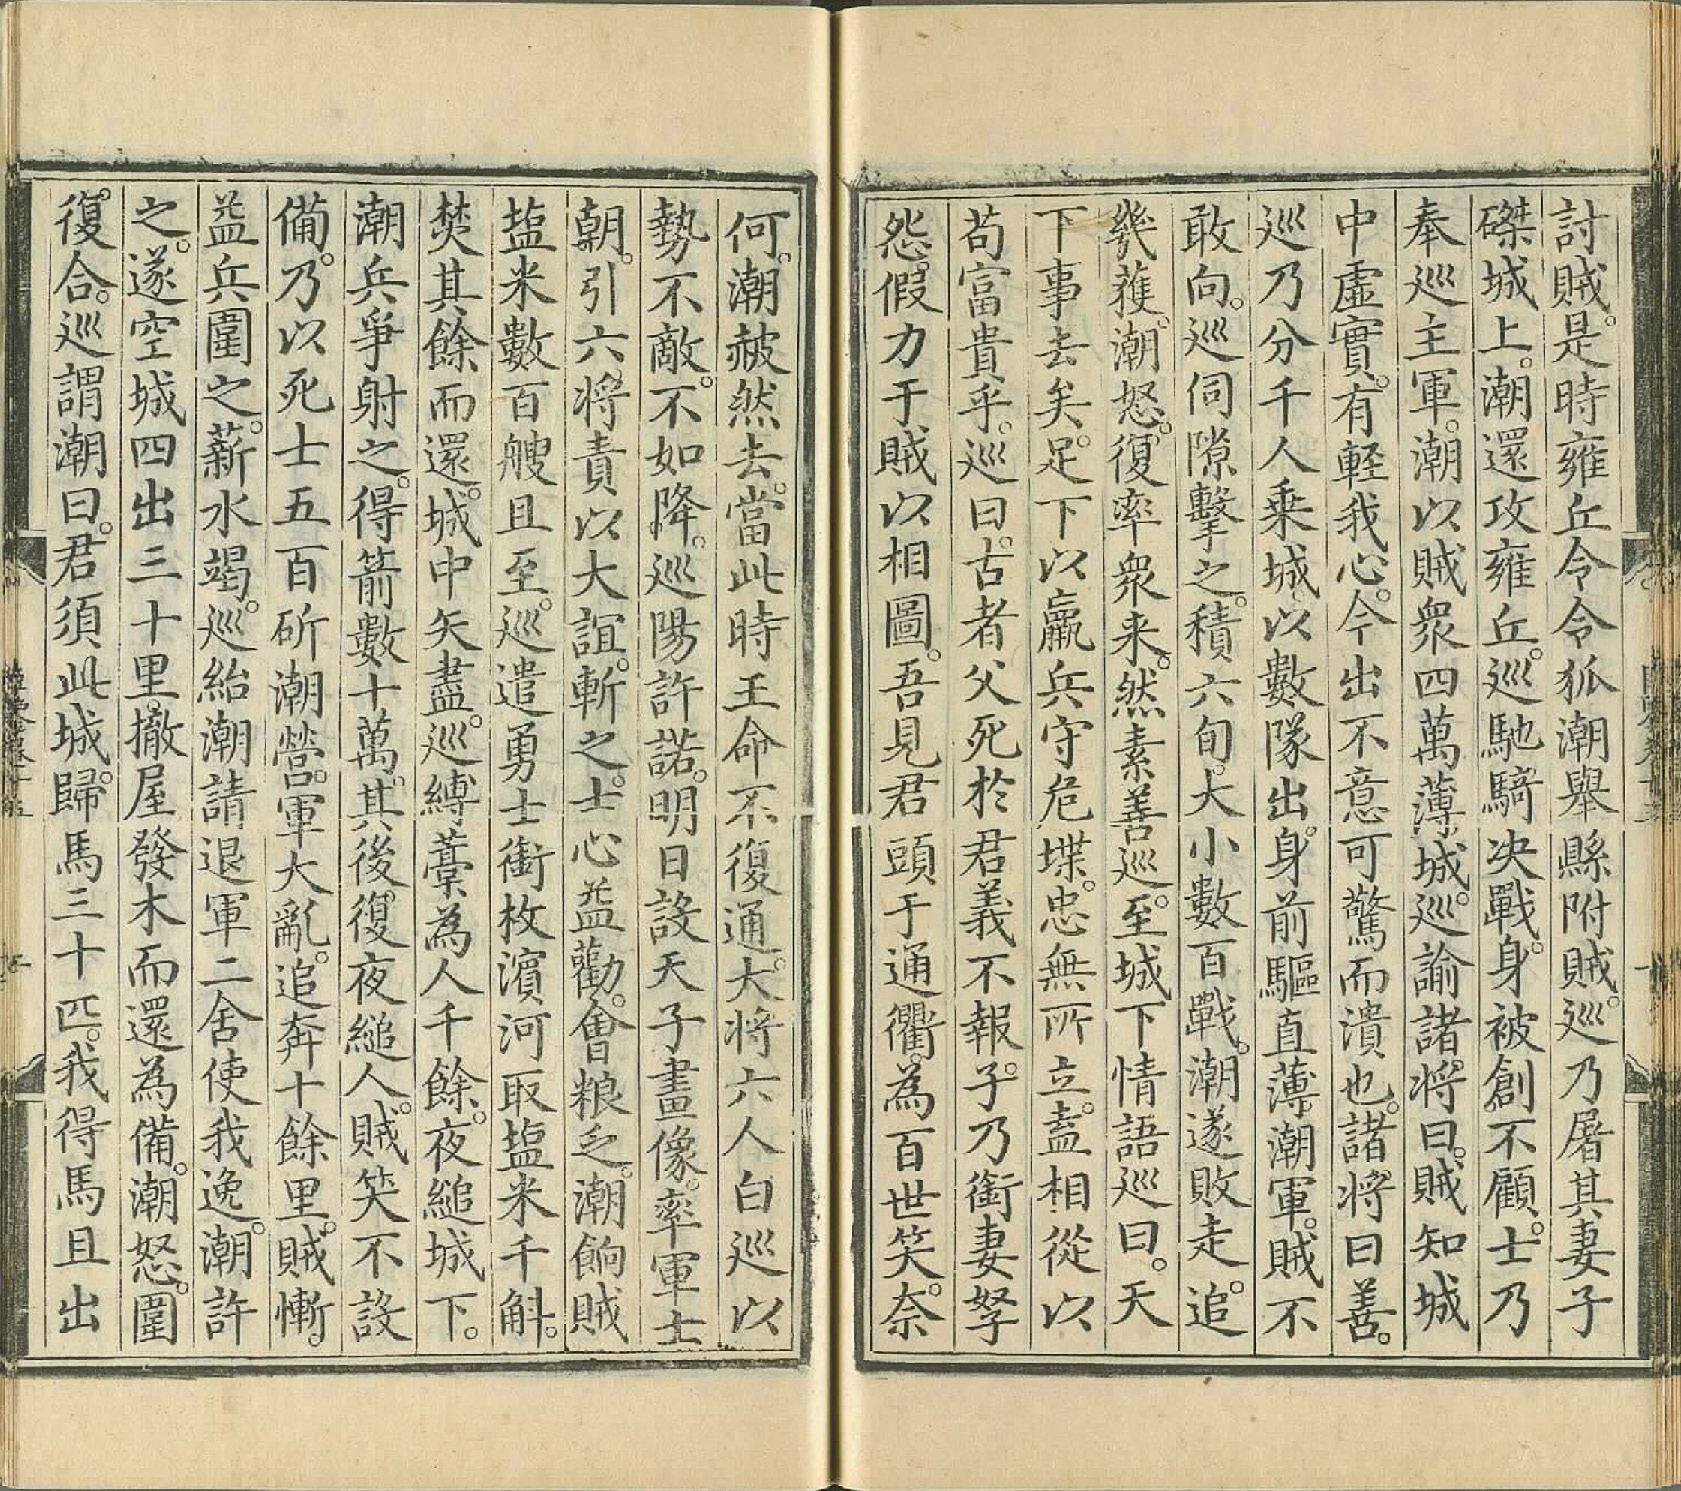 討賊。是時雍丘令令狐潮舉縣附賊。巡乃屠其妻子
磔城上。潮還攻雍丘。巡馳騎決戰。身被創。不顧。士乃
奉巡主軍。潮以賊衆四萬薄城。巡諭諸將曰。賊知城
中虛實。有輕我心。今出不意可驚而潰也。諸將曰善。
巡乃分千人乗城。以數隊出。身前驅直薄潮軍。賊不
敢向。巡伺隙擊之。積六旬。大小數百戰。潮遂敗走。追
幾獲。潮怒。復率衆来。然素善巡。至城下情語巡曰。天
下事去矣。足下以羸兵守危堞。忠無所立。盍相從以
苟富貴乎。巡曰。古者父死於君義不報。子乃銜妻孥
怨。假力于賊以相圖。吾見君頭于通衢。為百世笑。奈
何。潮赧然去。當此時王命不復通。大将六人白巡以
勢不敵。不如降。巡陽許諾。明日設天子畫像。率軍士
朝。引六将責以大誼。斬之。士心益勸。會粮乏。潮餉賊
塩米數百艘且至。巡遣勇士銜枚濱河取塩米千斛。
焚其餘而還。城中矢盡。巡縛藁為人千餘。夜縋城下。
潮兵爭射之。得箭數十萬。其後復夜縋人。賊笑不設
備。乃以死士五百斫潮營。軍大亂。追奔十餘里。賊慚。
益兵圍之。薪水竭。巡紿潮請退軍二舍使我逸。潮許
之。遂空城四出三十里。撤屋發木而還為備。潮怒。圍
復合。巡謂潮曰。君須此城。歸馬三十匹。我得馬且出